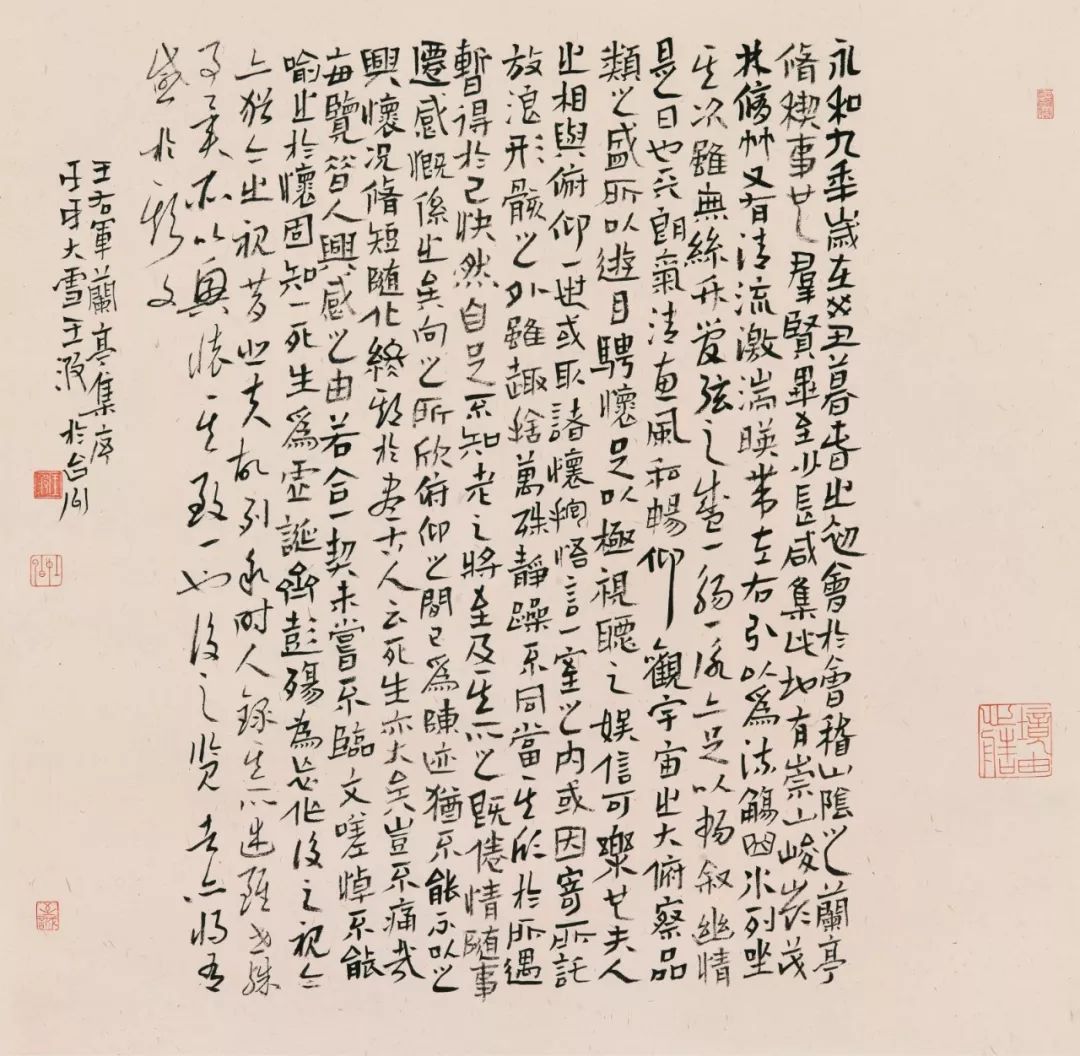 永和九年歲在癸丑暮春之初會於會稽山陰之蘭亭
脩稧事也羣賢畢至少長咸集此地有崇山峻嶺茂
林脩竹又有清流激湍暎帶左右引以為流觴曲水列坐
其次雖無絲竹管弦之盛一觴一詠亦足以暢敘幽情
是日也天朗氣清惠風和暢仰觀宇宙之大俯察品
類之盛所以遊目騁懷足以極視聽之娛信可樂也夫人
之相與俯仰一世或取諸懷抱悟言一室之內或因寄所託
放浪形骸之外雖趣捨萬殊靜躁不同當其欣於所遇
暫得於己快然自足不知老之將至及其所之既倦情隨事
遷感慨係之矣向之所欣俯仰之間已為陳迹猶不能不以之
興懷況脩短隨化終期於盡古人云死生亦大矣豈不痛哉
每覽昔人興感之由若合一契未嘗不臨文嗟悼不能
喻之於懷固知一死生為虛誕齊彭殤為妄作後之視今
亦猶今之視昔悲夫故列敘時人錄其所述雖世殊
事異所以興懷其致一也後之覽者亦將有
感於斯文
王右軍蘭亭集序
大雪王波於台州